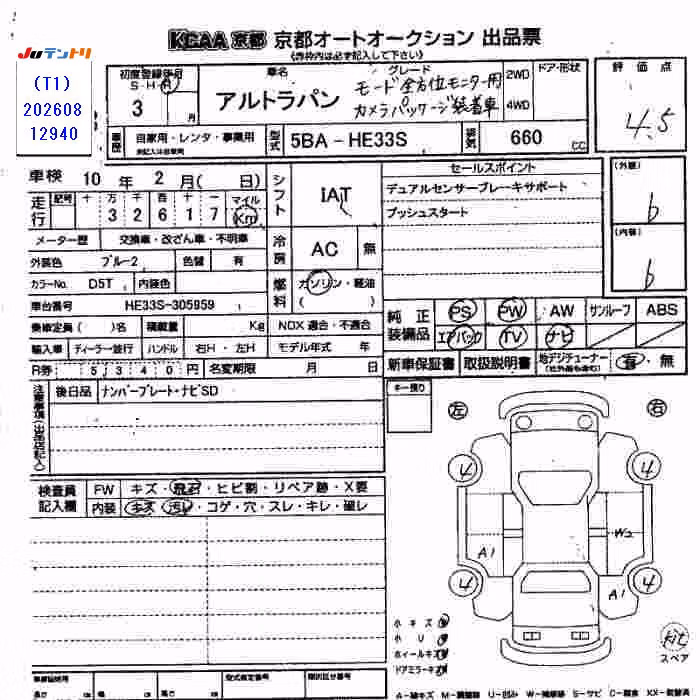 JUテントリ
(T1)
202608
12940
KCAA 京都 京都オートオークション 出品票
(赤枠内は必ず記入して下さい)
初度登録年月
S・H・R
3 月
車名
アルトラパン
グレード
モード 全方位モニター用
カメラパッケージ装着車
2WD
4WD
ドア・形状
評価点
4.5
車歴
自家用・レンタ・事業用
型式
5BA-HE33S
排気
660 cc
車検 10年 2月( 日)
シフト
IAT
セールスポイント
デュアルセンサーブレーキサポート
プッシュスタート
(外観)
6
(内装)
6
走行
記号 十 万 千 百 十 一
3 2 6 1 7
マイル
Km
メーター歴 交換車・改ざん車・不明車
冷房
AC 無
外装色 ブルー2 色替 有
カラーNo. D5T 内装色
燃料
ガソリン・軽油
( )
車台番号 HE33S-305959
乗車定員( )名 積載量 Kg NOX 適合・不適合
輸入車 ディーラー並行 ハンドル 右H・左H モデル年式 年
純正装備品
PS PW AW サンルーフ ABS
エアバック TV ナビ
新車保証書 取扱説明書 地デジチューナー 有・無
R券 5340円 名変期限 月 日
注意事項(出品店記入)
後日品 ナンバープレート・ナビSD
キー預り
左 右
検査員記入欄
FW キズ・飛石・ヒビ割・リペア跡・X要
内装 キズ・汚レ・コゲ・穴・スレ・キレ・破レ
4 4
A1 W2
4 4
A1
小キズ
小U
ホイールキズ
ドアミラーキズ
kit
スペア